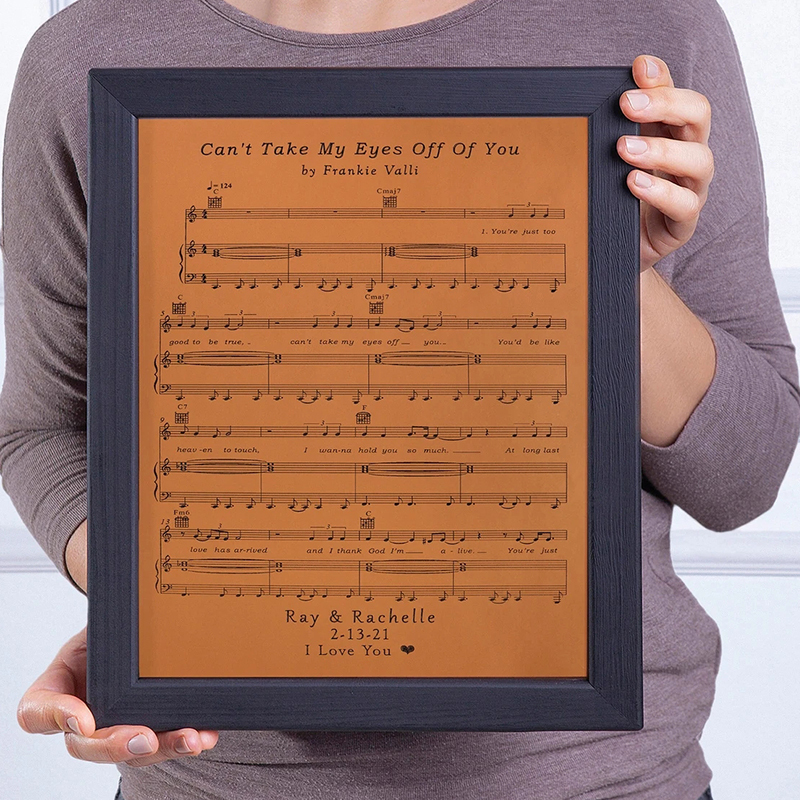 Can't Take My Eyes Off Of You
by Frankie Valli
♩= 124
C Cmaj7
3
1. You're just too
C Cmaj7
5 3 3 3 3 3
good to be true, can't take my eyes off you. You'd be like
C7 F
9 3 3 3
heav-en to touch, I wan-na hold you so much. At long last
Fm6 C
13 3 3
love has ar-rived and I thank God I'm a - live. You're just
Ray & Rachelle
2-13-21
I Love You ❤